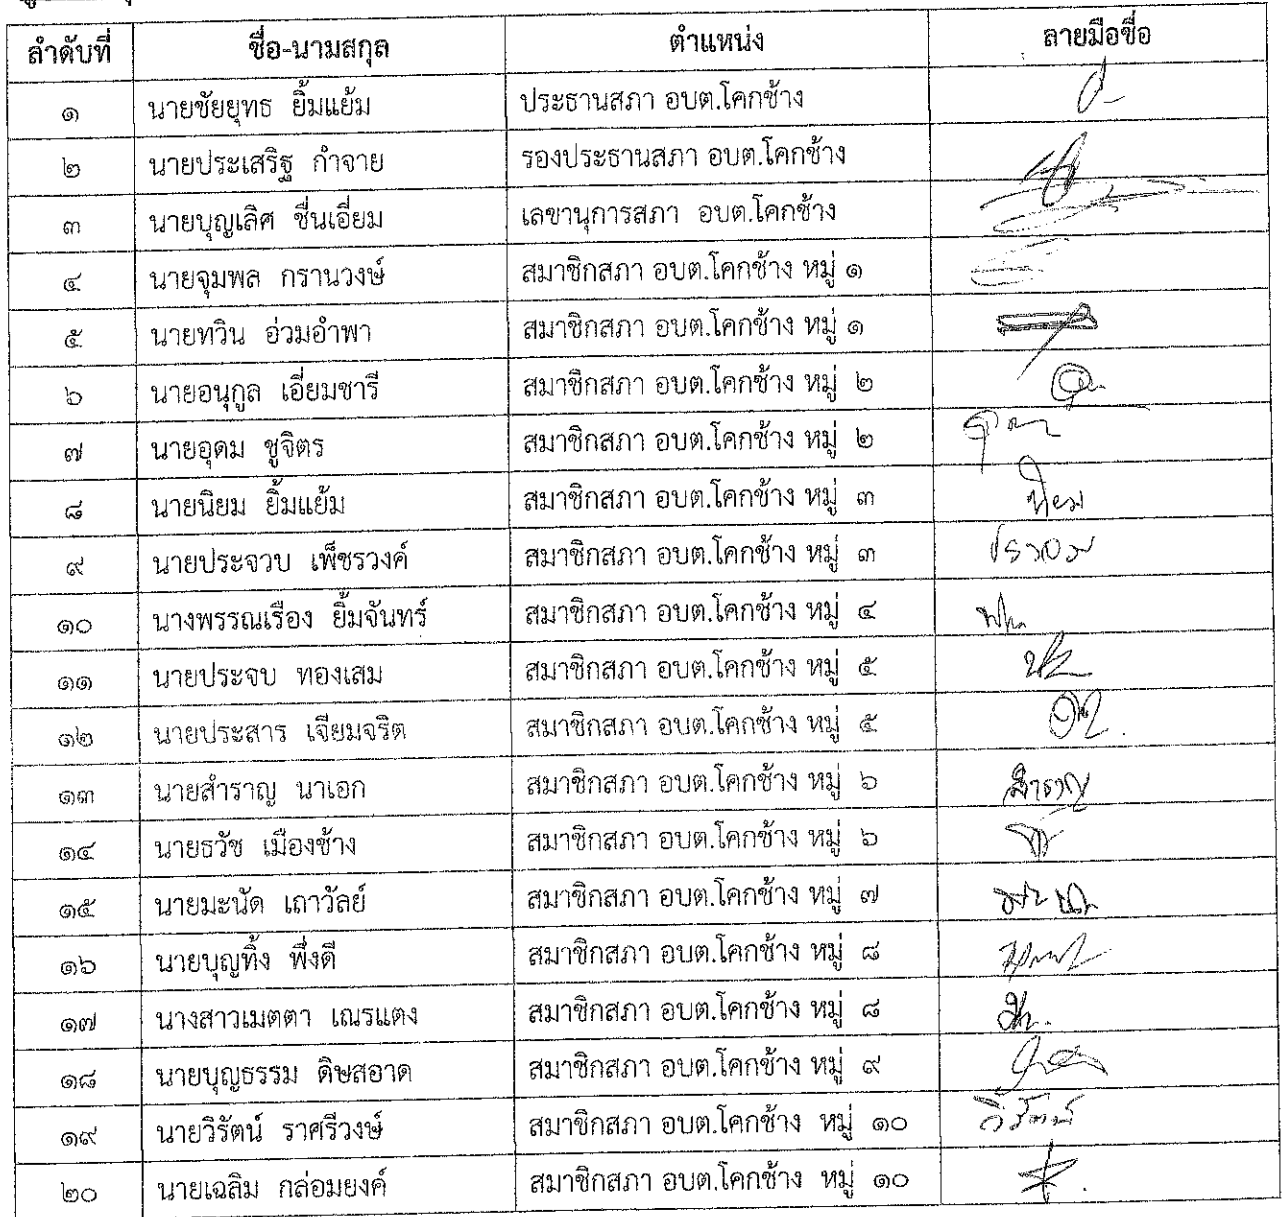 ลำดับที่ ชื่อ-นามสกุล ตำแหน่ง ลายมือชื่อ
๑ นายชัยยุทธ ยิ้มแย้ม ประธานสภา อบต.โคกช้าง
๒ นายประเสริฐ กำจาย รองประธานสภา อบต.โคกช้าง
๓ นายบุญเลิศ ชื่นเอี่ยม เลขานุการสภา อบต.โคกช้าง
๔ นายจุมพล กรานวงษ์ สมาชิกสภา อบต.โคกช้าง หมู่ ๑
๕ นายทวิน อ่วมอำพา สมาชิกสภา อบต.โคกช้าง หมู่ ๑
๖ นายอนุกูล เอี่ยมชารี สมาชิกสภา อบต.โคกช้าง หมู่ ๒
๗ นายอุดม ชูจิตร สมาชิกสภา อบต.โคกช้าง หมู่ ๒
๘ นายนิยม ยิ้มแย้ม สมาชิกสภา อบต.โคกช้าง หมู่ ๓ นิยม
๙ นายประจวบ เพ็ชรวงค์ สมาชิกสภา อบต.โคกช้าง หมู่ ๓
๑๐ นางพรรณเรือง ยิ้มจันทร์ สมาชิกสภา อบต.โคกช้าง หมู่ ๔
๑๑ นายประจบ ทองเสม สมาชิกสภา อบต.โคกช้าง หมู่ ๕
๑๒ นายประสาร เจียมจริต สมาชิกสภา อบต.โคกช้าง หมู่ ๕
๑๓ นายสำราญ นาเอก สมาชิกสภา อบต.โคกช้าง หมู่ ๖ สำราญ
๑๔ นายธวัช เมืองช้าง สมาชิกสภา อบต.โคกช้าง หมู่ ๖
๑๕ นายมะนัด เถาวัลย์ สมาชิกสภา อบต.โคกช้าง หมู่ ๗
๑๖ นายบุญทิ้ง พึ่งดี สมาชิกสภา อบต.โคกช้าง หมู่ ๘
๑๗ นางสาวเมตตา เณรแตง สมาชิกสภา อบต.โคกช้าง หมู่ ๘
๑๘ นายบุญธรรม ดิษสอาด สมาชิกสภา อบต.โคกช้าง หมู่ ๙
๑๙ นายวิรัตน์ ราศรีวงษ์ สมาชิกสภา อบต.โคกช้าง หมู่ ๑๐ วิรัตน์
๒๐ นายเฉลิม กล่อมยงค์ สมาชิกสภา อบต.โคกช้าง หมู่ ๑๐